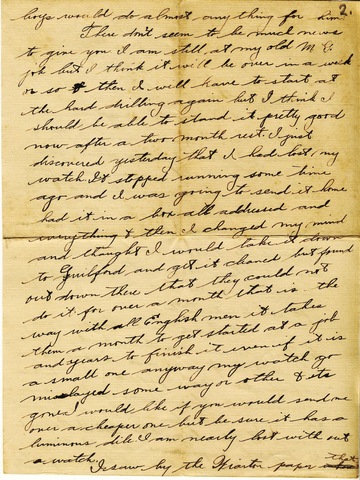 2.
boys would do almost anything for him.
There don't seem to be much news
to give you I am still at my old M.E.
job but I think it will be over in a week
or so & then I will have to start at
the hard drilling again but I think I
should be able to stand it pretty good
now after a two month rest. I just
discovered yesterday that I had lost my
watch. It stopped running some time
ago and I was going to send it home
had it in a box all addressed and
everything & then I changed my mind
and thought I would take it down
to Guilford and get it chaned but found
out down there that they could not
do it for over a month that is the
way with all English men it takes
them a month to get started at a job
and years to finish it even if it is
a small one anyway my watch go
mislayed some way or other & its
gone I would like if you would send me
over a cheaper one but be sure it has a
luminous dile I am nearly lost with out
a watch.
I saw by the Wiarton paper that